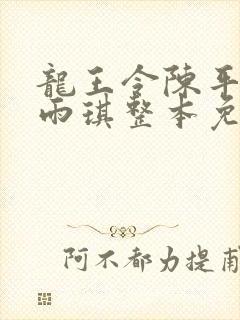 龍王令陳平
雨琪整本免
阿不都力提甫